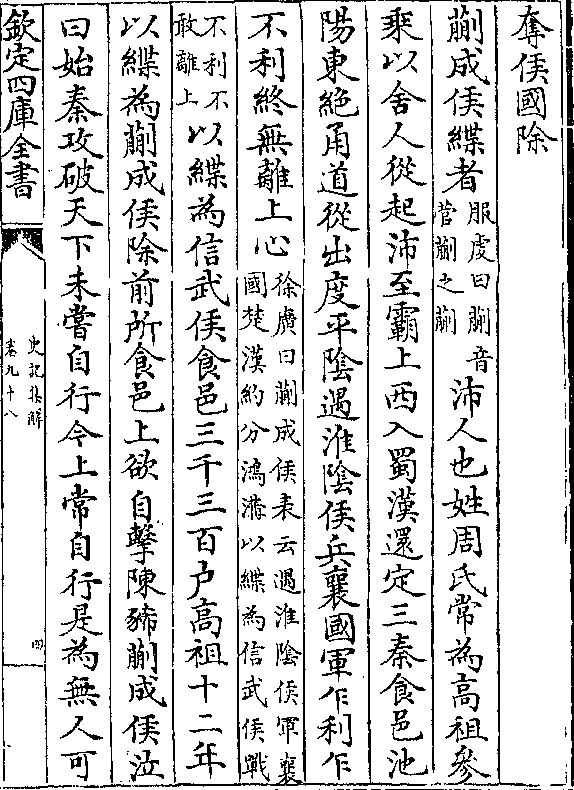 奪侯國除
蒯成侯緤者服虔曰蒯音菅蒯之蒯沛人也姓周氏常為高祖參
乘以舍人從起沛至霸上西入蜀漢還定三秦食邑池
陽東絶甬道從出度平隂遇淮隂侯兵襄國軍乍利乍
不利終無離上心徐廣曰蒯成侯表云遇淮隂侯軍襄國楚漢約分鴻溝以緤為信武侯戰
不利不敢離上以緤為信武侯食邑三千三百户高祖十二年
以緤為蒯成侯除前所食邑上欲自擊陳豨蒯成侯泣
曰始秦攻破天下未嘗自行今上常自行是為無人可
欽定四庫全書
史記集解
卷九十八
四